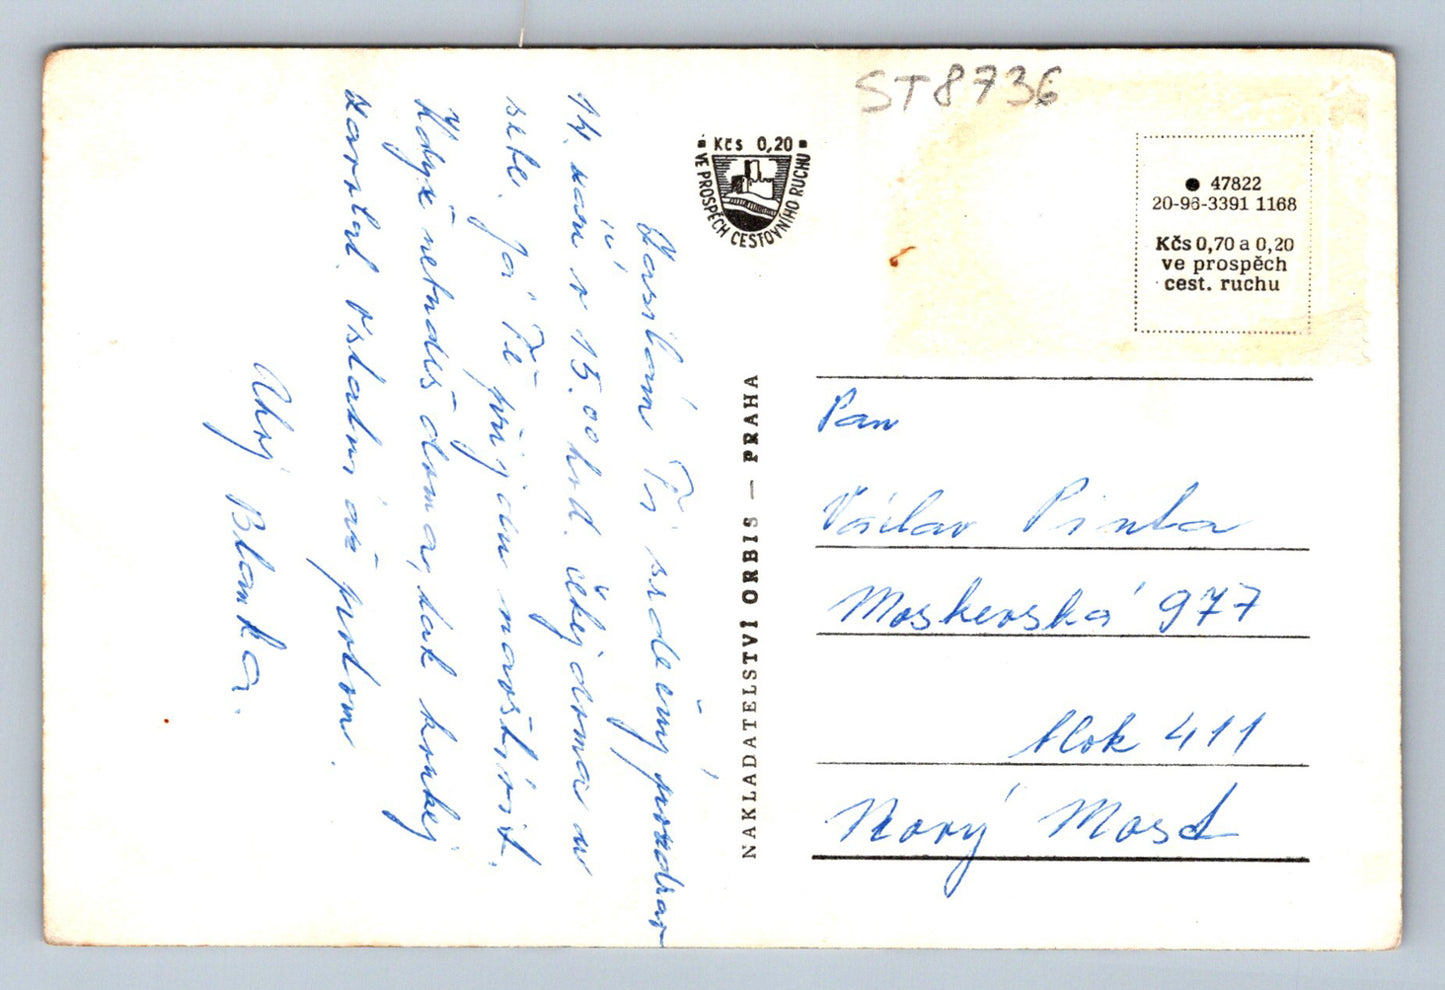 ST8736
Kčs 0,20
VE PROSPĚCH CESTOVNÍHO RUCHU
47822
20-96-3391 1168
Kčs 0,70 a 0,20
ve prospěch
cest. ruchu
Zasílám Ti srdečný pozdrav
14. září v 15.00 hod. čekej doma u
sebe. Já Tě přijdu navštívit.
Když nebudeš doma, tak koukej
zavolat. Ostatní až potom.
Ahoj
Blanka.
NAKLADATELSTVÍ ORBIS — PRAHA
Pan
Václav Pinta
Moskevská 977
blok 411
Nový Most